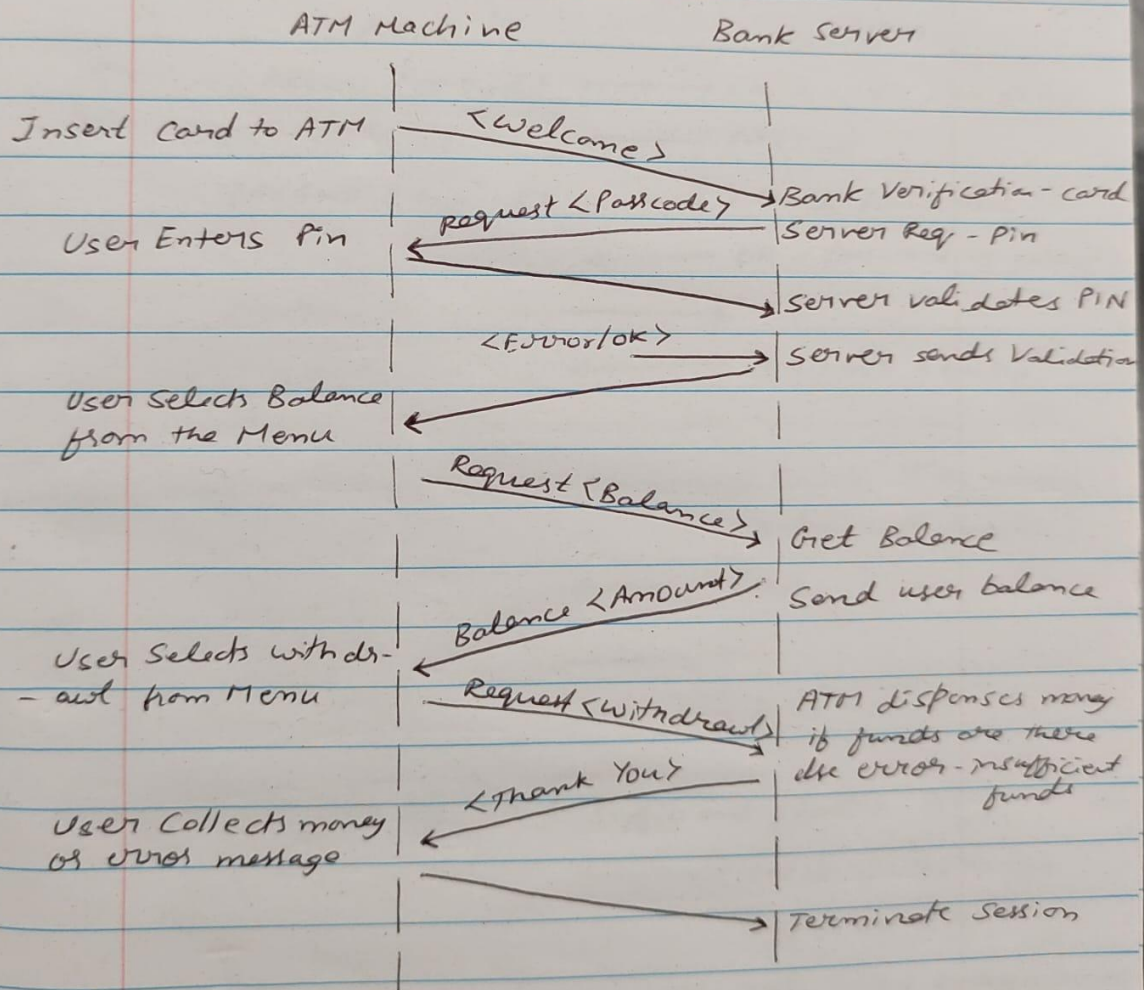 ATM Machine
Bank Server
Insert Card to ATM
<Welcome>
Bank Verification-card
Request <Passcode>
Server Req - Pin
User Enters Pin
Server validates PIN
<Error/ok>
Server sends Validation
User Selects Balance
from the Menu
Request <Balance>
Get Balance
Balance <Amount>
Send user balance
User Selects withdr-
- awl from Menu
Request <withdrawl>
ATM dispenses money
if funds are there
else error-insufficient
funds
<Thank You>
User Collects money
or error message
Terminate Session